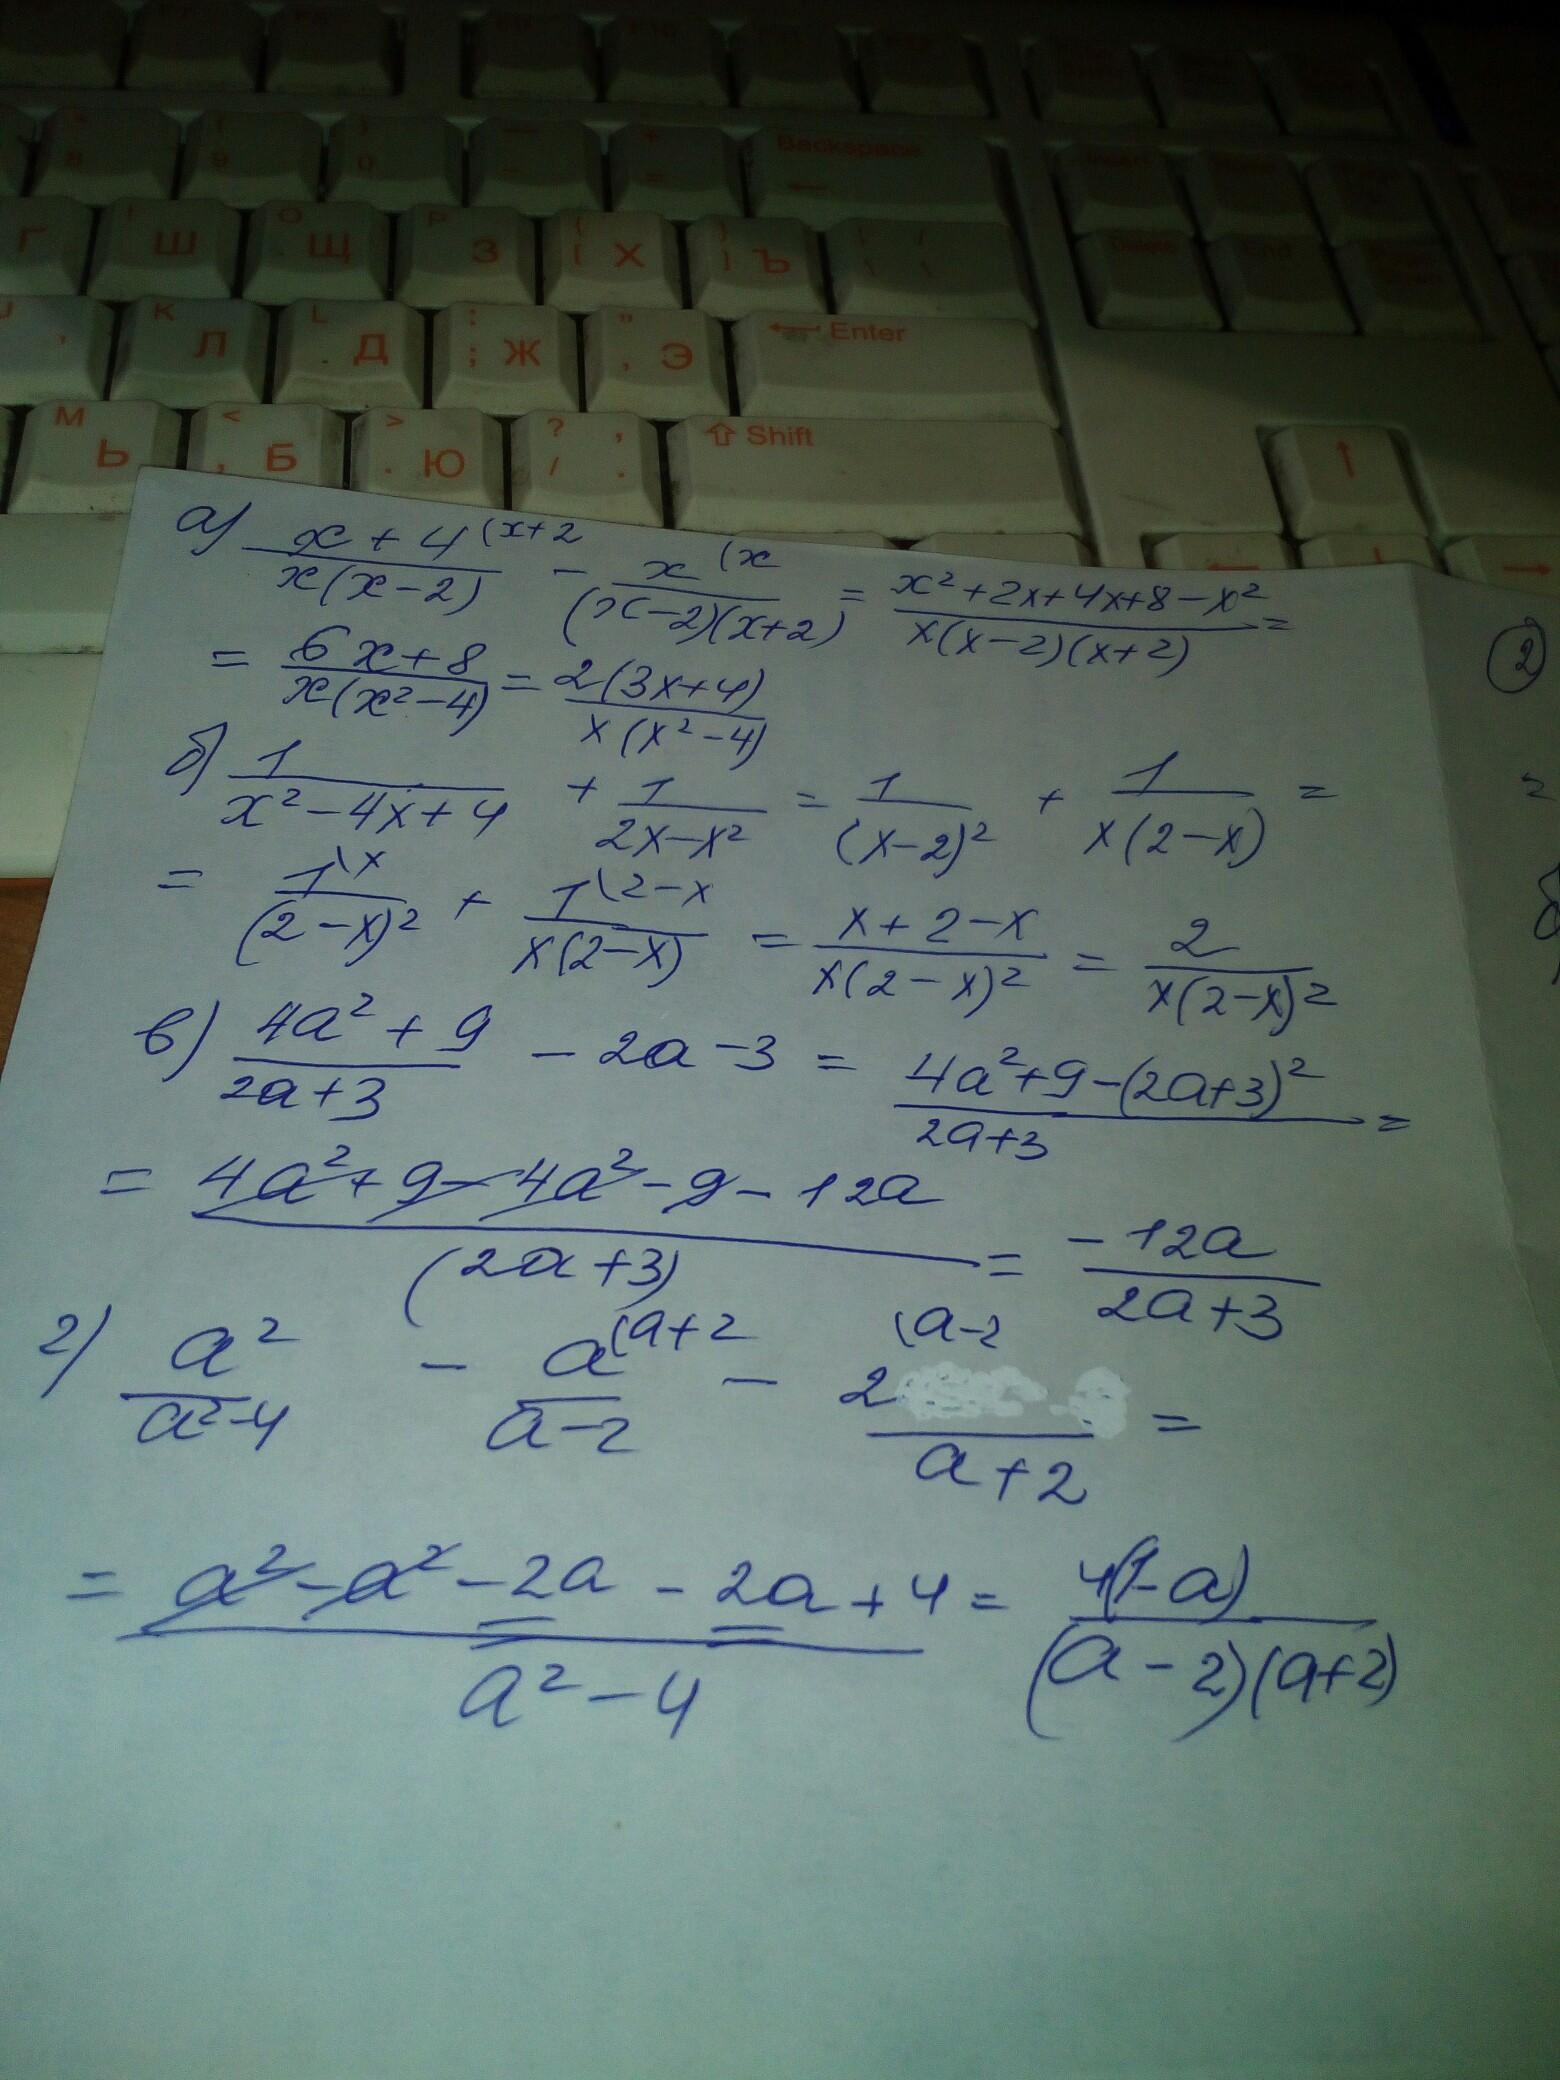 8 9 0 - _ + = Backspace
Г ! Ш О Щ Р З { [ Х } ] Ъ / \
K Л L Д : ; Ж " , Э Enter
М Ь < , Б > . Ю ? / , . Shift
а) x + 4 (x+2 / x(x-2) - x (x / (x-2)(x+2) = x² + 2x + 4x + 8 - x² / x(x-2)(x+2) =
= 6x + 8 / x(x² - 4) = 2(3x+4) / x(x² - 4)
②
б) 1 / x² - 4x + 4 + 1 / 2x - x² = 1 / (x-2)² + 1 / x(2-x) =
= 1 \x / (2-x)² + 1 \2-x / x(2-x) = x + 2 - x / x(2-x)² = 2 / x(2-x)²
в) 4a² + 9 / 2a+3 - 2a - 3 = 4a² + 9 - (2a+3)² / 2a+3 =
= 4a² + 9 - 4a² - 9 - 12a / (2a+3) = -12a / 2a+3
г) a² / a² - 4 - a (a+2 / a-2 - 2 (a-2 / a+2 =
= a² - a² - 2a - 2a + 4 / a² - 4 = 4(1-a) / (a-2)(a+2)